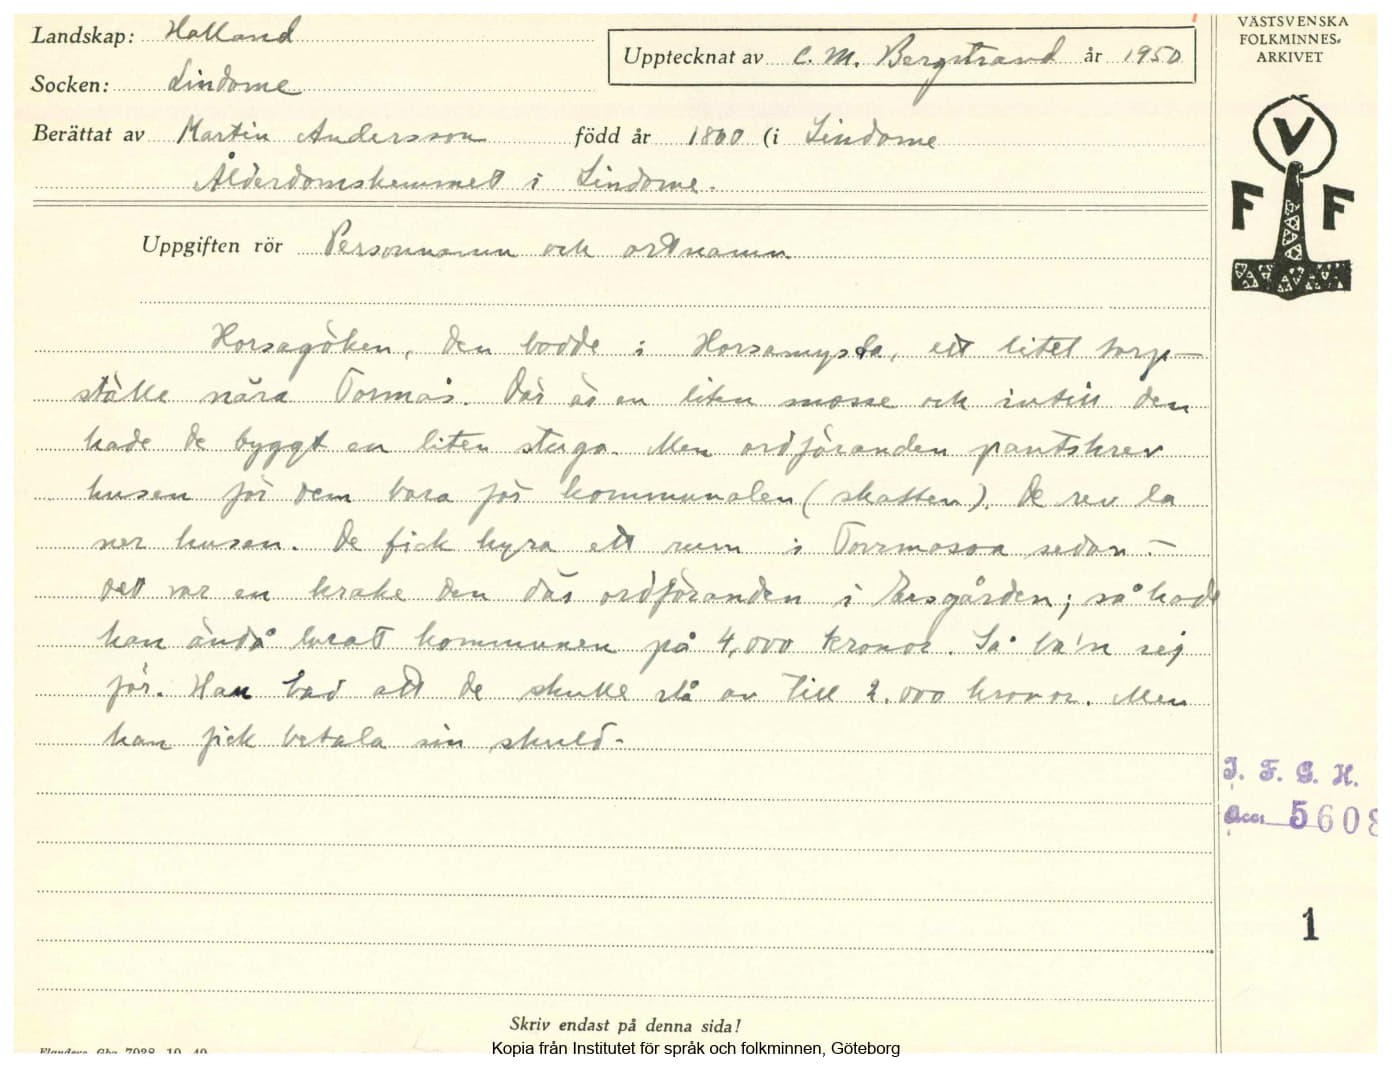 Landskap: Halland
Socken: Lindome
Upptecknat av C. M. Bergstrand år 1950
Berättat av Martin Andersson född år 1800 (i Lindome
Ålderdomshemmet i Lindome.
Uppgiften rör Personnamn och ortnamn
Horsagöken, den bodde i Horsamysta, ett litet torp-
ställe nära Tormås. Där är en liten mosse och intill den
hade de byggt en liten stuga. Men ordföranden pantskrev
husen för dem bara för kommunalen (skatten). De rev la
ner husen. De fick hyra ett rum i sedan. —
Det var en krake den där ordföranden i ; så hade
han ändå lurat kommunen på 4,000 kronor. Så ba'n sej
för. Han bad att de skulle slå av till 2.000 kronor. Men
han fick betala sin skuld.
VÄSTSVENSKA
FOLKMINNES-
ARKIVET
V
F F
I. F. G. H.
Acc. 5608
1
Skriv endast på denna sida!
Kopia från Institutet för språk och folkminnen, Göteborg